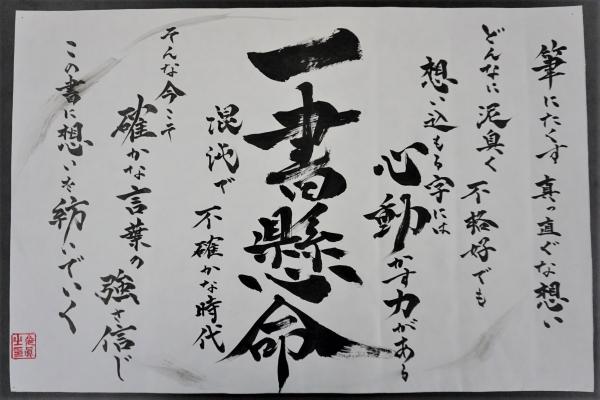 筆にたくす 真っ直ぐな想い
どんなに泥臭く 不格好でも
想い込もる字には
心動かす力がある
一書懸命
混沌で 不確かな時代
そんな今こそ
確かな言葉の 強さ信じ
この書に想いを紡いでいく